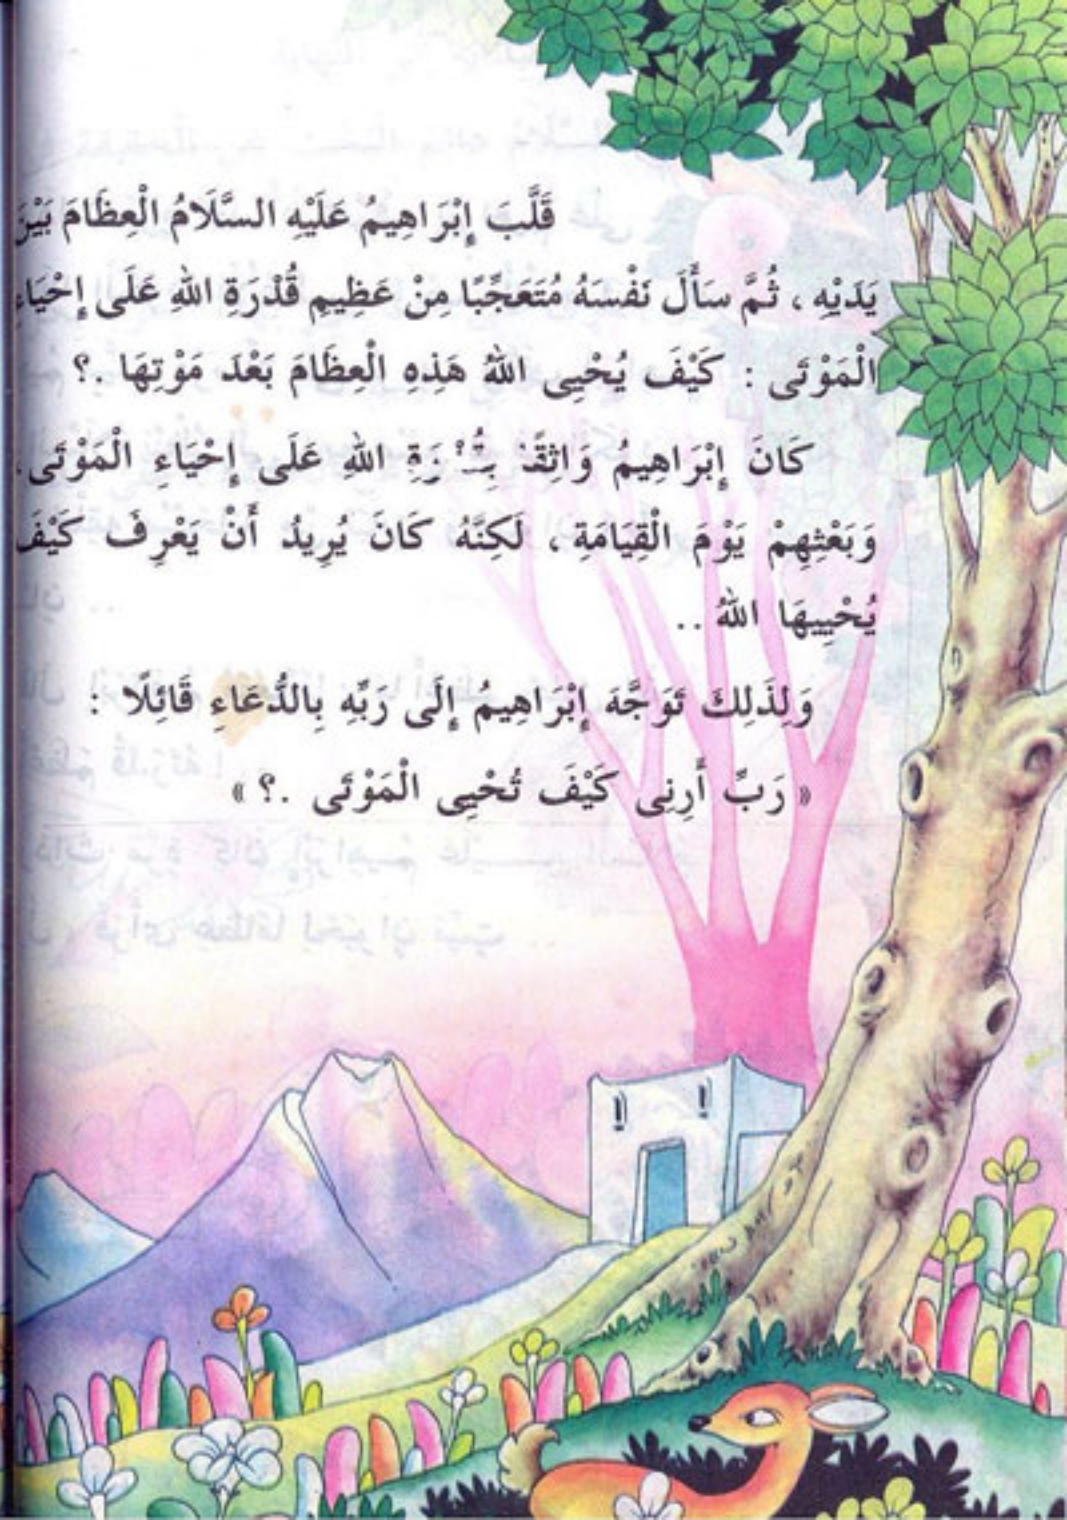 قَلَّبَ إِبْرَاهِيمُ عَلَيْهِ السَّلَامُ الْعِظَامَ بَيْنَ
يَدَيْهِ ، ثُمَّ سَأَلَ نَفْسَهُ مُتَعَجِّبًا مِنْ عَظِيمِ قُدْرَةِ اللهِ عَلَى إِحْيَاءِ
الْمَوْتَى : كَيْفَ يُحْيِى اللهُ هَذِهِ الْعِظَامَ بَعْدَ مَوْتِهَا .؟
كَانَ إِبْرَاهِيمُ وَاثِقًا اللهِ عَلَى إِحْيَاءِ الْمَوْتَى
وَبَعْثِهِمْ يَوْمَ الْقِيَامَةِ ، لَكِنَّهُ كَانَ يُرِيدُ أَنْ يَعْرِفَ كَيْفَ
يُحْيِيهَا اللهُ ..
وَلِذَلِكَ تَوَجَّهَ إِبْرَاهِيمُ إِلَى رَبِّهِ بِالدُّعَاءِ قَائِلًا :
« رَبِّ أَرِنِى كَيْفَ تُحْيِى الْمَوْتَى .؟ »